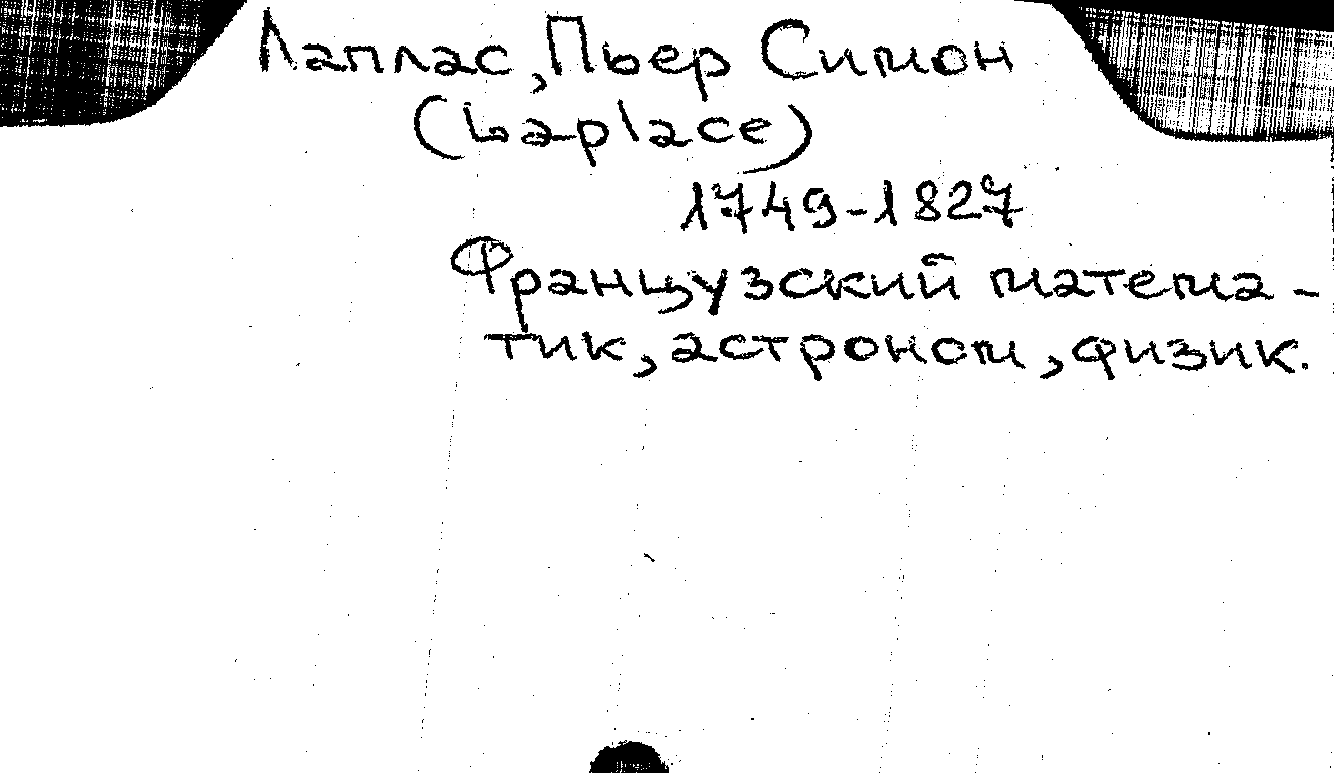 Лаплас, Пьер Симон
(Laplace)
1749-1827
Французский матема-
тик, астроном, физик.